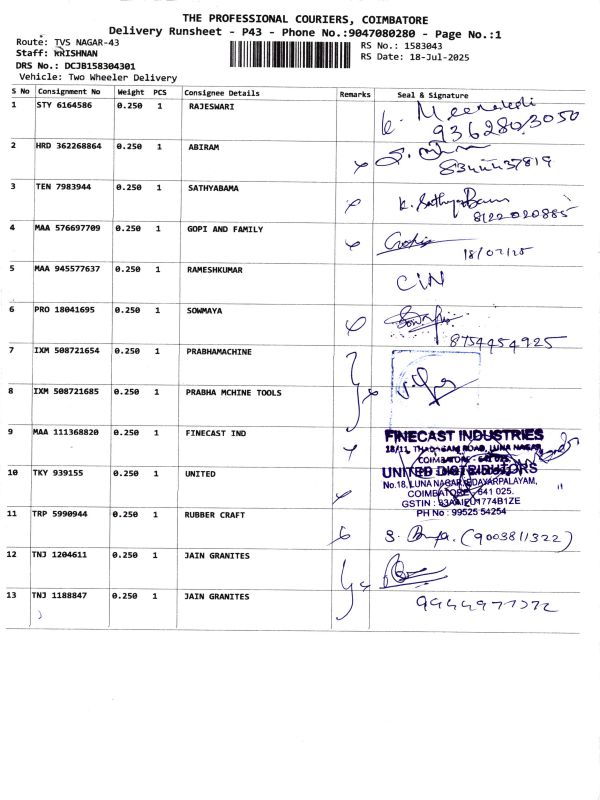 THE PROFESSIONAL COURIERS, COIMBATORE
Delivery Runsheet - P43 - Phone No.:9047080280 - Page No.:1
Route: TVS NAGAR-43
RS No.: 1583043
Staff: KRISHNAN
RS Date: 18-Jul-2025
DRS No.: DCJB158304301
Vehicle: Two Wheeler Delivery
S No Consignment No Weight PCS Consignee Details Remarks Seal & Signature
1 STY 6164586 0.250 1 RAJESWARI
k. Meenakshi
9362803050
2 HRD 362268864 0.250 1 ABIRAM
3 TEN 7983944 0.250 1 SATHYABAMA
k. Sathyabama
8122020885
4 MAA 576697709 0.250 1 GOPI AND FAMILY
18/07/25
5 MAA 945577637 0.250 1 RAMESHKUMAR
CIN
6 PRO 18041695 0.250 1 SOWMAYA
8754454925
7 IXM 508721654 0.250 1 PRABHAMACHINE
8 IXM 508721685 0.250 1 PRABHA MCHINE TOOLS
9 MAA 111368820 0.250 1 FINECAST IND
FINECAST INDUSTRIES
18/11, THADAGAM ROAD, LUNA NAGAR,
COIMBATORE - 641 025.
10 TKY 939155 0.250 1 UNITED
UNITED DISTRIBUTORS
No.18, LUNA NAGAR, EDAYARPALAYAM,
COIMBATORE - 641 025.
GSTIN : 33AAIFU1774B1ZE
PH No : 99525 54254
11 TRP 5990944 0.250 1 RUBBER CRAFT
(9003811322)
12 TNJ 1204611 0.250 1 JAIN GRANITES
13 TNJ 1188847 0.250 1 JAIN GRANITES